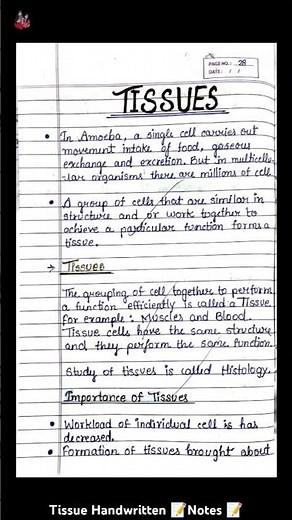 PAGE NO.: 28
DATE: / /
TISSUES
• In Amoeba, a single cell carries out
movement intake of food, gaseous
exchange and excretion. But in multicellu-
-lar organisms there are millions of cell
• A group of cells that are similar in
structure and or work together to
achieve a particular function forms a
tissue.
→ Tissues
The grouping of cell together to perform
a function efficiently is called a Tissue
for example: Muscles and Blood.
Tissue cells have the same structure
and they perform the same function.
Study of tissues is called Histology.
Importance of Tissues
• Workload of individual cell is has
decreased.
• Formation of tissues brought about
Tissue Handwritten 📝Notes 📝